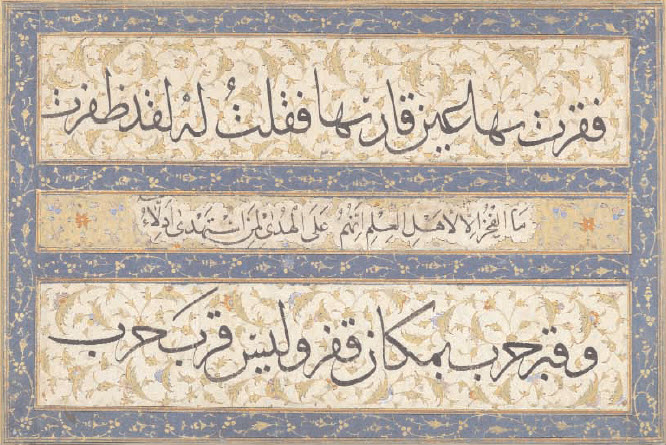 فقرت بها عين قاريها فقلتُ لهُ لقد ظفرت
مَا الفَخرُ الا لاهْلِ العِلْمِ انَّهُمُ عَلَى الهُدىٰ لِمَنِ اسْتَهْدىٰ ادِلّاءُ
وقبر حرب بمكان قفر وليس قرب حرب